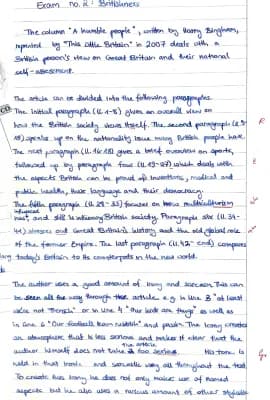 Exam no. 2: Britishness
The column "A humble people", written by Harry Bingham,
reprinted by "This Little Britain" in 2007 deals with a
British person's view on Great Britain and their national
self-assessment.
The article can be divided into the following paragraphs.
The initial paragraph (ll. 1-8) gives an overall view on
how the British society views itself. The second paragraph (ll. 9-
) speaks up on the nationality issue many British people have.
The next paragraph (ll. 16-18) gives a brief overview on sports,
followed up by paragraph four (ll. 19-27) which deals with
the aspects Britain can be proud of: inventions, medical and
public health, their language and their democracy.
The fifth paragraph (ll. 28-33) focuses on how multiculturism
has and still is influencing British society. Paragraph six (ll. 34-
41) stresses Great Britain's history and the old global role
of the former Empire. The last paragraph (ll. 42- end) compares
today's Britain to its counterparts in the new world.
The author uses a good amount of irony and sarcasm. This can
be seen all the way through the article, e.g. in line 3 "at least
we're not French" or in line 4 "Our are things" as well as
in line 6 "Our football team rubbish" and . The irony creates
an atmosphere that is less serious and makes it clear that the
author himself does not take the article too serious. His tone is
held in that ironic and sarcastic way all throughout the text.
To create this irony he does not only make use of named
aspects but he also uses a various amount of other stylistic